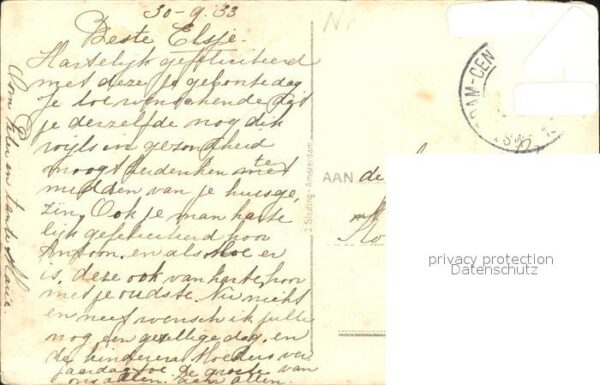 30-9.33
Beste Elsje.
Hartelijk gefeliciteerd
met deze je geboortedag
je toe wenschende dat
je derzelfde nog dik
wijls in gezondheid
moogt herdenken te
midden van je huisge
zin. Ook je man harte
lijk gefeliciteerd hoor
Antoon. en als Moe er
is, deze ook van harte hoor
met je oudste. Nu nicht
en neef wensch ik jullie
nog een gezellige dag. en
de kinderen Moeders ver
jaardag toe. De groete van
ons allen. aan allen.
en tante Marie.
J. Sleding - Amsterdam
AAN de
DAM-CEN
privacy protection
Datenschutz